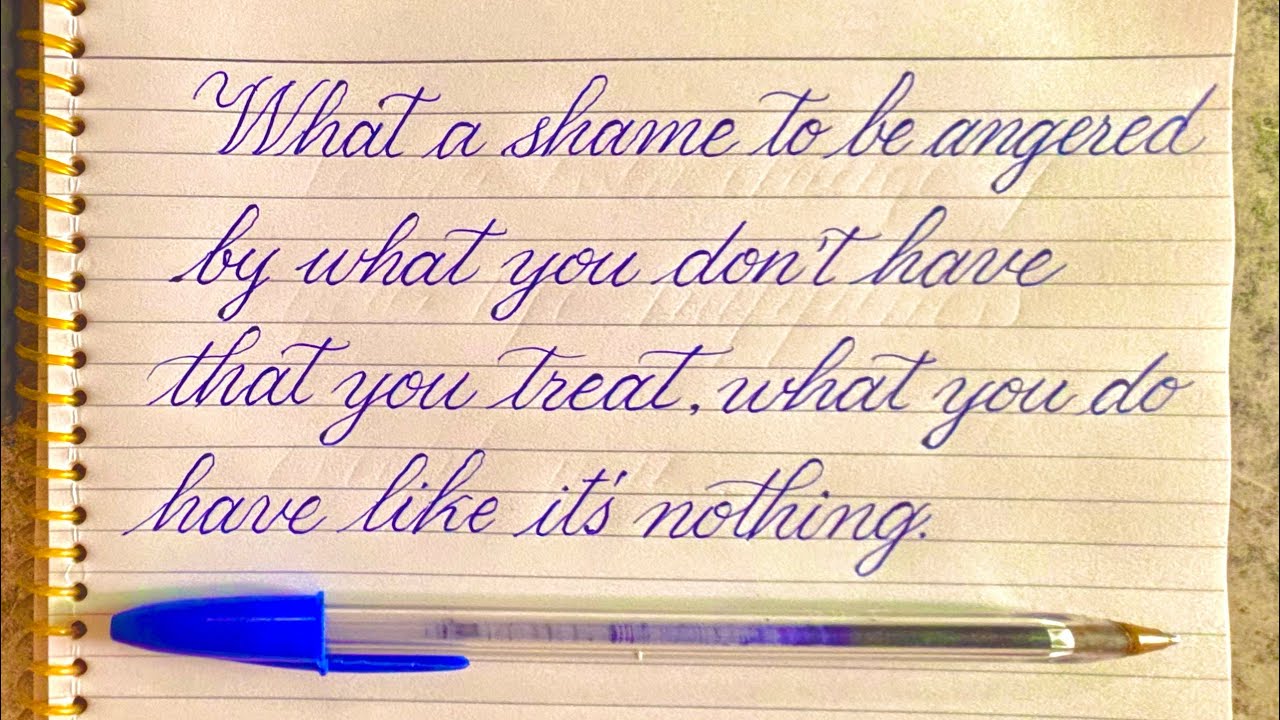 What a shame to be angered
by what you don't have
that you treat, what you do
have like it's nothing.